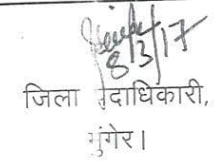 8/3/17
जिला पदाधिकारी,
मुंगेर।